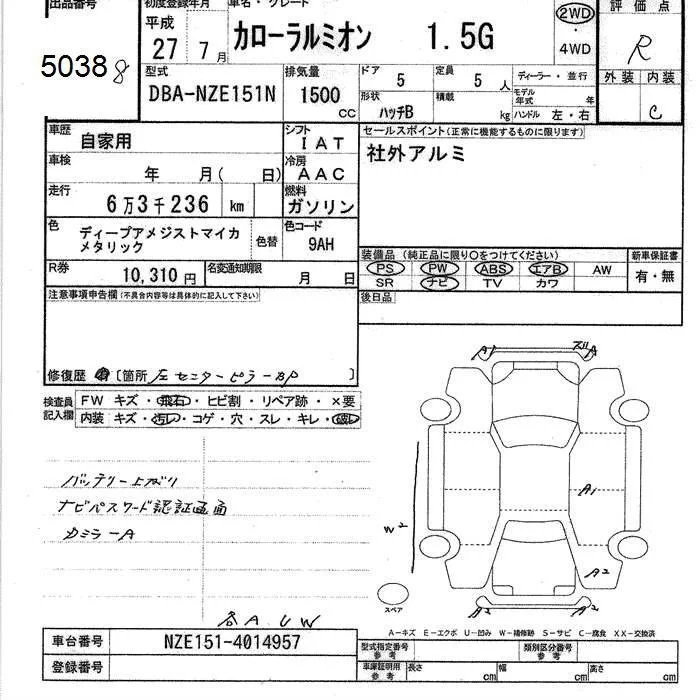 出品番号 初度登録年月 車名・グレード 評価点
5038 8 平成 27年 7月 カローラルミオン 1.5G 2WD ・ 4WD R
型式 DBA-NZE151N 排気量 1500 CC ドア 5 定員 5人 ディーラー・並行 外装 内装
形状 ハッチB 積載 kg モデル年式 年 ハンドル 左・右 C
車歴 自家用 シフト IAT セールスポイント(正常に機能するものに限ります)
車検 年 月( 日) 冷房 AAC 社外アルミ
走行 6万3千236 km 燃料 ガソリン
色 ディープアメジストマイカメタリック 色替 色コード 9AH
装備品 (純正品に限り○をつけてください) 新車保証書
PS PW ABS エアB AW 有・無
SR ナビ TV カワ
R券 10,310円 名変通知期限 月 日
後日品
注意事項申告欄(不具合内容等は具体的に記入して下さい)
修復歴 有 [箇所 左センターピラーBP ]
検査員記入欄 FW キズ・飛石・ヒビ割・リペア跡・×要
内装 キズ・汚レ・コゲ・穴・スレ・キレ・破レ
バッテリー上ガリ
ナビパスワード認証画面
カミラーA
各A U W
A1 ズA
A1
W2
A2
A2 A2
スペア
A-キズ E-エクボ U-凹み W-補修跡 S-サビ C-腐食 XX-交換済
車台番号 NZE151-4014957
登録番号
型式指定番号 参考 類別区分番号 参考
車庫証明用 参考 長さ cm 幅 cm 高さ cm